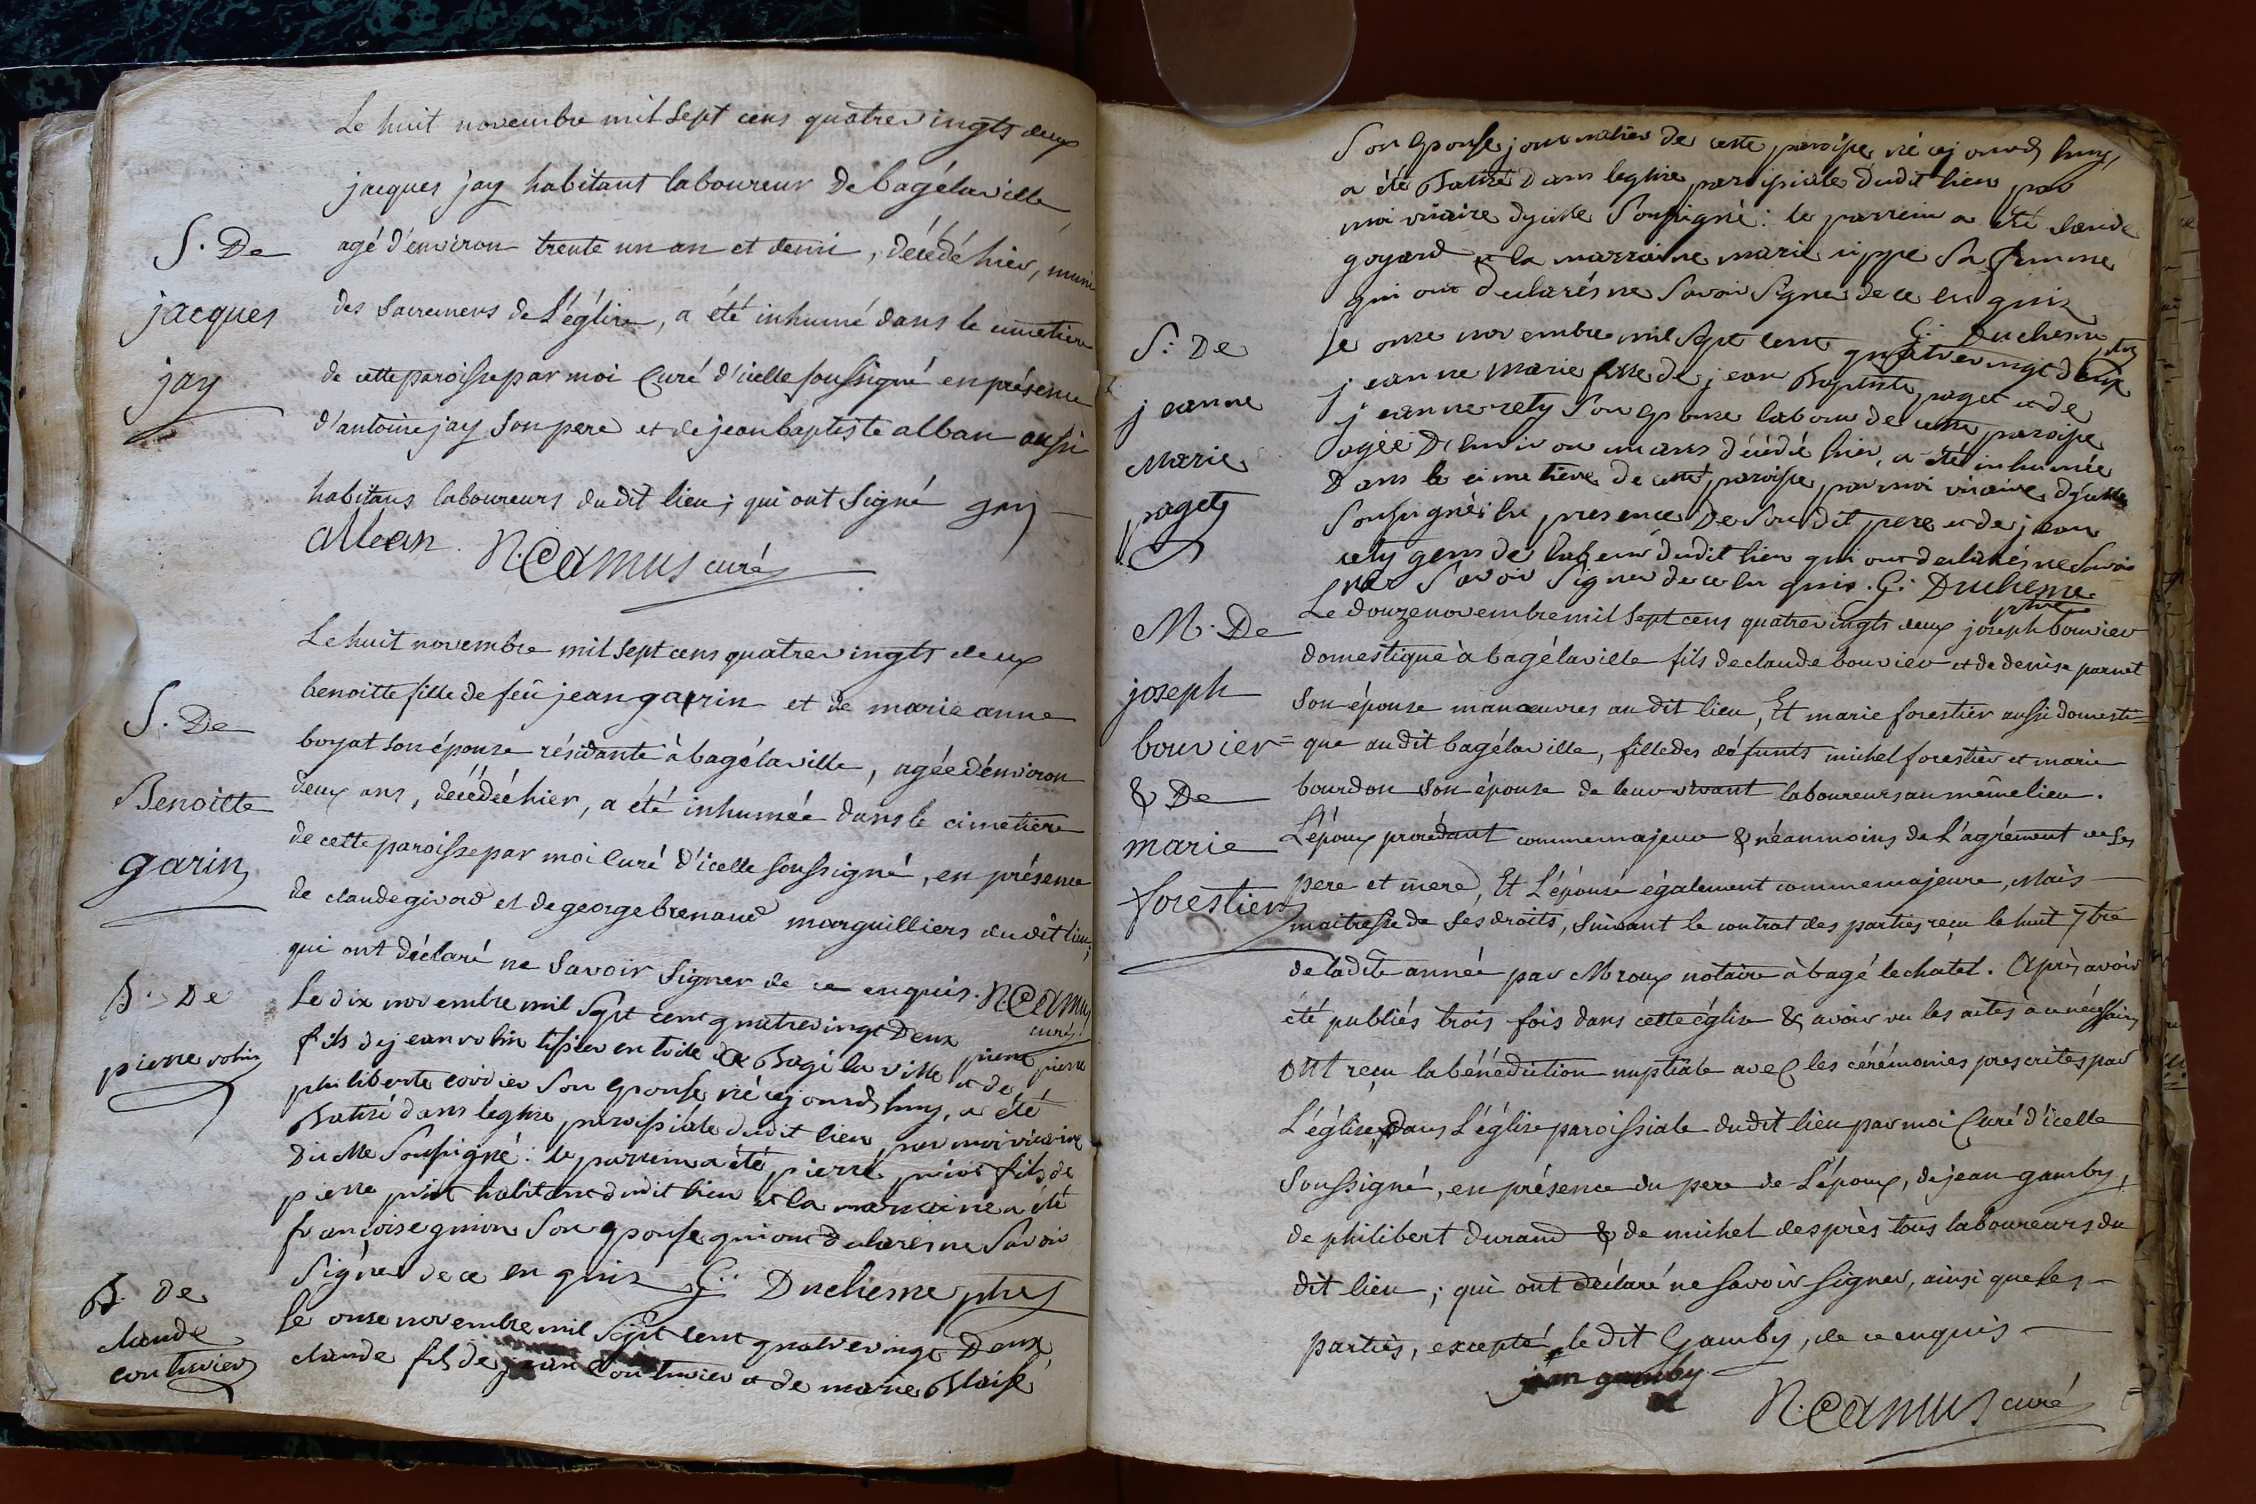 Le huit novembre mil sept cens quatrevingts deux
jacques jay habitant laboureur de bagélaville
S. De
agé d'environ trente un an et demi, décédé hier, muni
jacques
des sacremens de L'église, a été inhumé dans le cimetiere
jay
de cette paroisse par moi Curé d'icelle soussigné en présence
d'antoine jay son pere et de jean baptiste alban aussi
habitans laboureurs dudit lieu ; qui ont signé jay
alban. N. Camus curé
Le huit novembre mil sept cens quatrevingts deux
S. De
benoitte fille de feû jean garrin et de marie anne
boyat son épouse résidante à bagélaville, agée d'environ
Benoitte
deux ans, décédée hier, a été inhumée dans le cimetiere
garin
de cette paroisse par moi Curé d'icelle soussigné, en présence
de claude givord et de george brenaud marguilliers dudit lieu ;
qui ont déclaré ne savoir signer de ce enquis. N. Camus
curé
B. De
Le dix novembre mil sept cent quatrevingt Deux pierre
pierre robin
fils de jean robin tissier en toile de Bagé la ville et de
philiberte cordier son Eponse né cejourdhuy, a été
Batisé dans leglise paroissiale dudit lieu, par moi vicaire
Dicelle soussigné : le parrein a été pierre fils de
pierre habitant dudit lieu et la marraine a été
françoise guion son eponse qui ont declarés ne savoir
signer de ce enquis G. Duchesne ptre
B de
Le onse novembre mil sept cent quatrevingt Deux,
claude
couturier
claude fils de jean Couturier et de marie Blaise
son Eponse journalier de cette paroisse né cejourdhuy
a été Batisé Dans leglise paroissiale dudit lieu par
moi vicaire dycelle soussigné : le parrein a été claude
goyard et la marraine marie sa femme
qui ont declarés ne savoir signer de ce enquis
G. Duchesne ptre
S. De
Le onse novembre mil sept cent quatrevingt deux
jeanne
jeanne marie fille de jean Baptiste paget et de
jeanne rety son eponse labour de cette paroisse
Marie
agée Denviron un ans décédé hier, a été inhumée
paget
Dans le cimetiere de cette paroisse par moi vicaire dycelle
soussigné en presence De sondit pere et de jean
rety gens de labeur dudit lieu qui ont declarés ne savoir
savoir signer de ce enquis. G. Duchesne
ptre
M. De
Le douze novembre mil sept cens quatrevingts deux joseph bouvier
domestique à bagélaville fils de claude bouvier et de denise parnet
joseph
son épouse manœuvres audit lieu, Et marie forestier aussi domesti=
bouvier
=que audit bagélaville, fille des défunts michel forestier et marie
& De
bourdon son épouse de leur vivant laboureurs au même lieu.
marie
L'époux procédant comme majeur & néanmoins de L'agrément de ses
forestier
pere et mere, Et L'épouse également comme majeure, Mais
maitresse de ses droits, suivant le contrat des parties reçu le huit 7bre
de ladite année par Mroux notaire à bagé le chatel. Après avoir
été publiés trois fois dans cette église & avoir vu les actes à ce nécessaires
ont reçu la bénédiction nuptiale avec les cérémonies prescrites par
L'église, Dans L'église paroissiale dudit lieu par moi Curé d'icelle
soussigné, en présence du pere de L'époux, de jean gamby,
de philibert durand & de michel desprès tous laboureurs du
dit lieu ; qui ont déclaré ne savoir signer, ainsi que les
parties, excepté ledit Gamby, de ce enquis
jean gamby
N. Camus curé